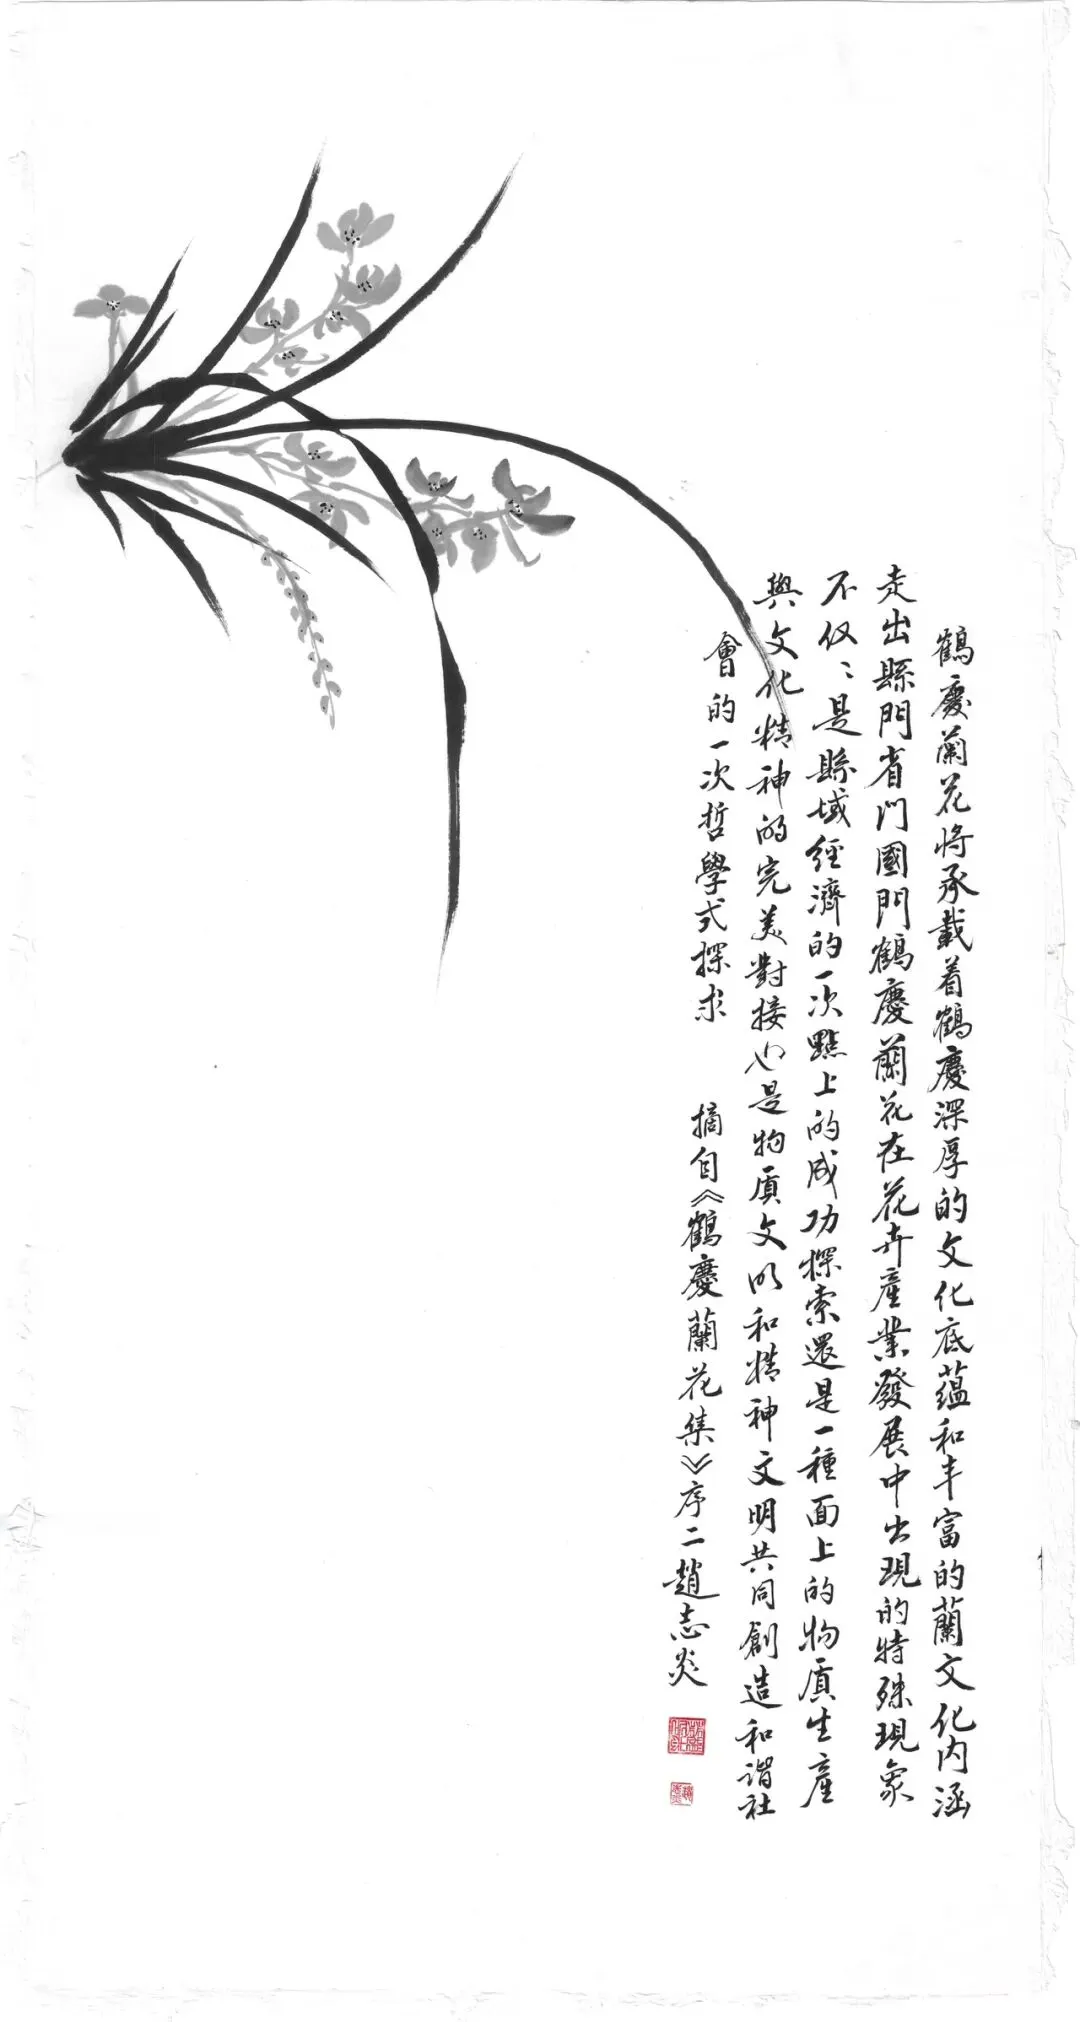 鶴慶蘭花将承載着鶴慶深厚的文化底蕴和丰富的蘭文化内涵
走出縣門省门國門鶴慶蘭花在花卉產業發展中出現的特殊現象
不仅〻是縣域經濟的一次點上的成功探索還是一種面上的物质生產
與文化精神的完美對接也是物质文明和精神文明共同創造和谐社
會的一次哲學式探求
摘自《鶴慶蘭花集》序二趙志炎